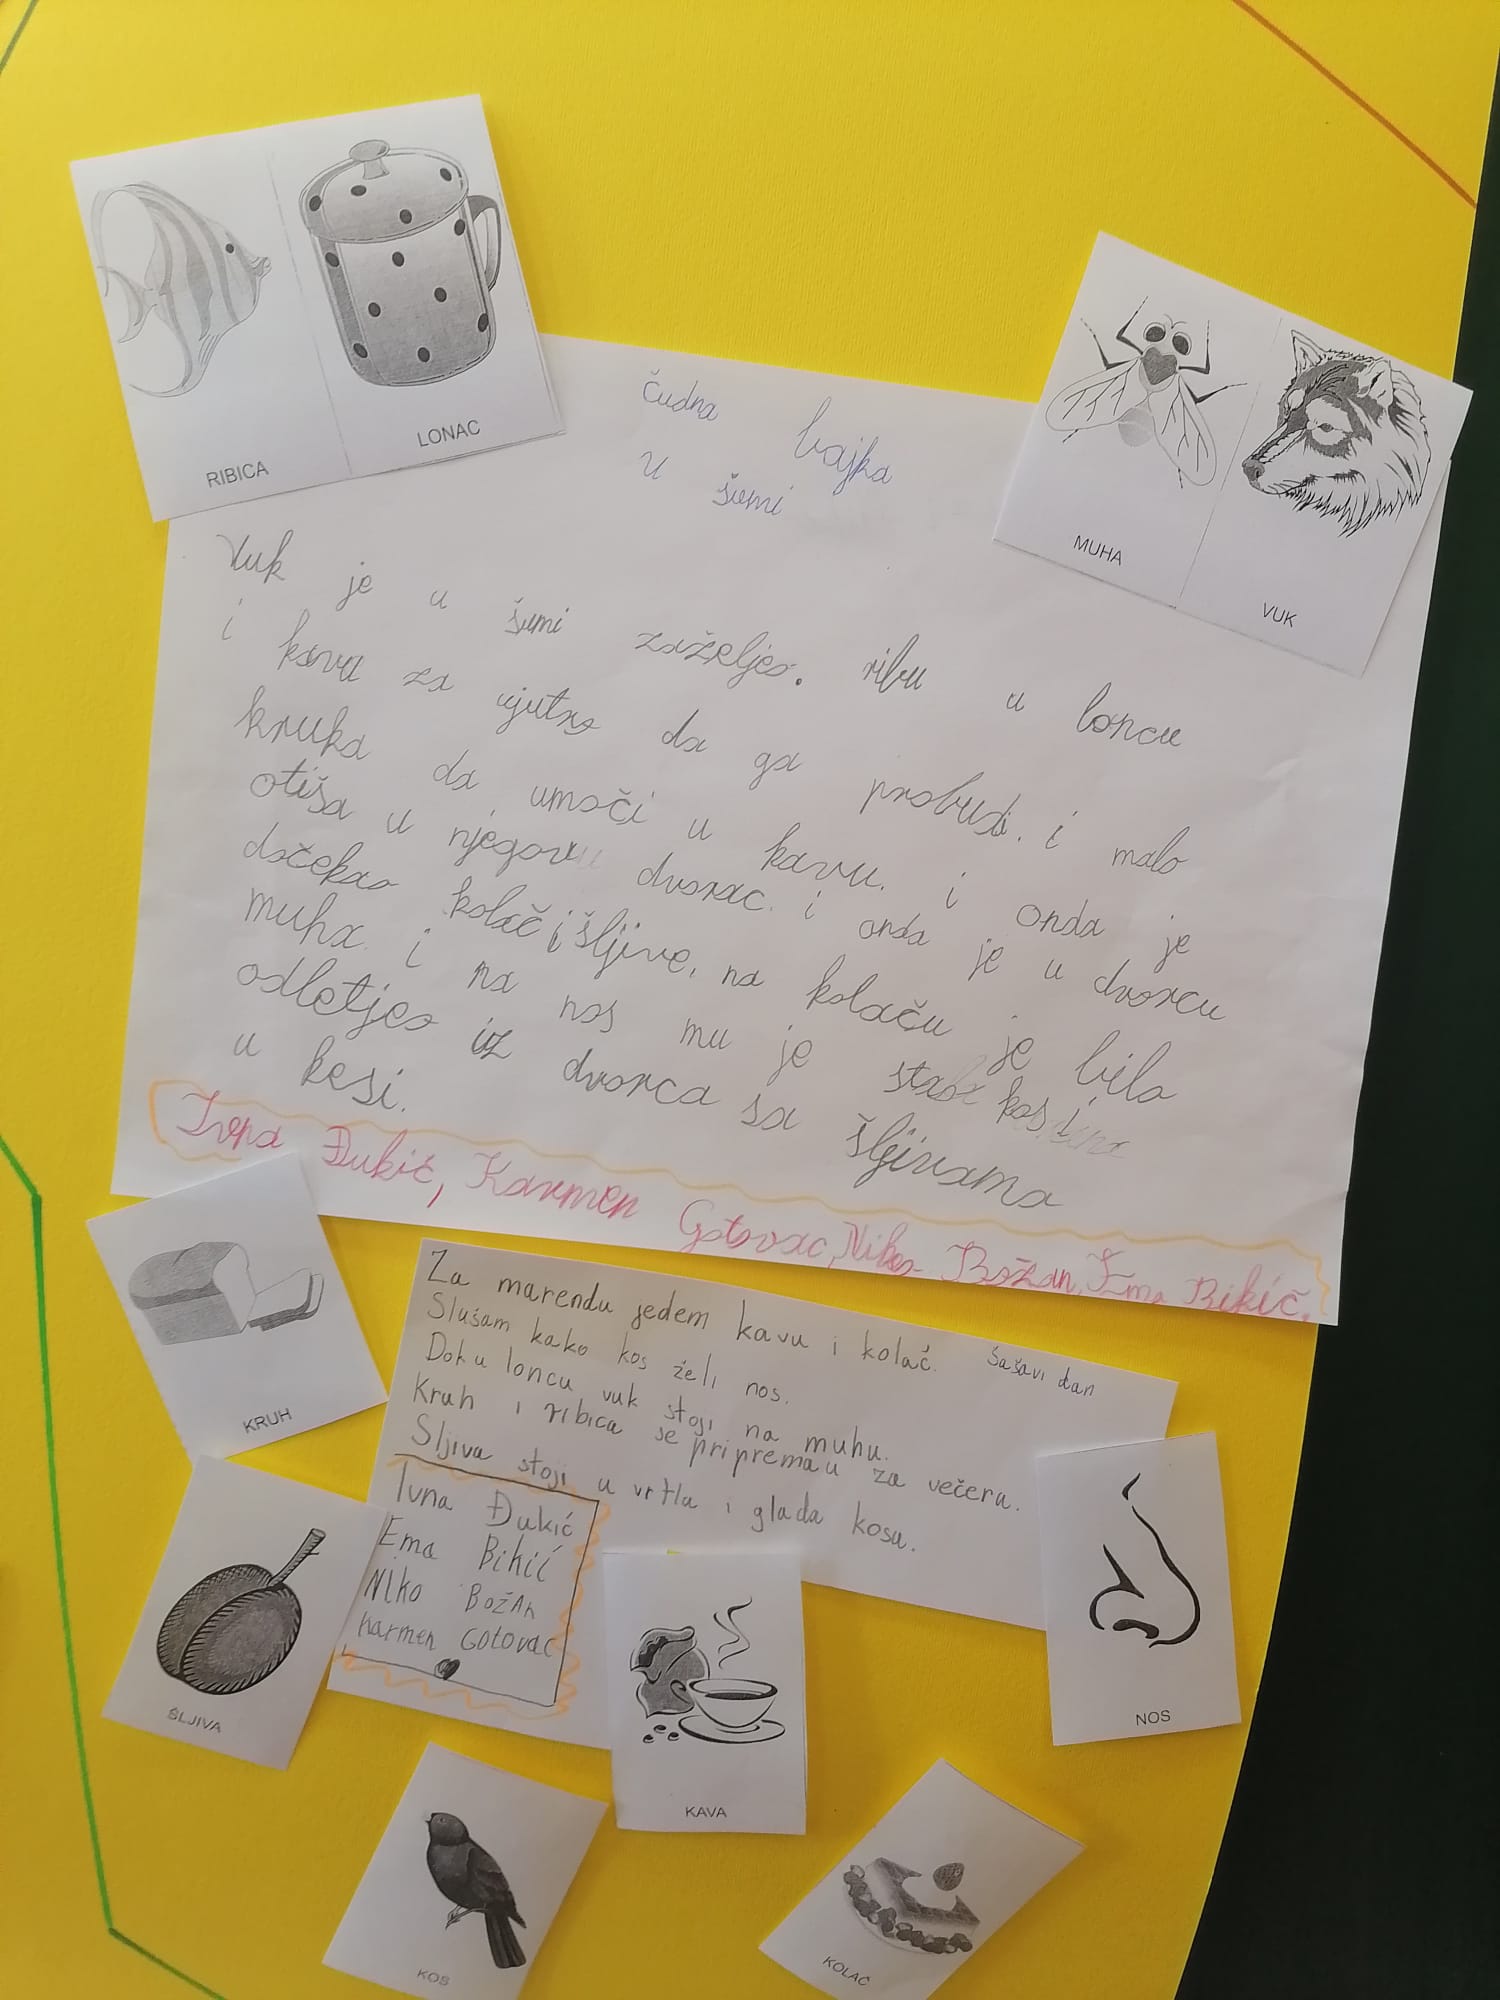 RIBICA
LONAC
MUHA
VUK
čudna bajka
u šumi
Vuk je u šumi zaželjeo. ribu u loncu
i kava za ujutro da ga probudi. i malo
kruha da umoči u kavu. i onda je
otiša u njegovu dvorac. i onda je u dvorcu
dočekao kolač i šljive, na kolaču je bila
muha i na nos mu je stao kos. i
odletjeo iz dvorca sa šljivama
u kesi.
Ivna Đukić, Karmen Gotovac, Niko Božan, Ema Bikić.
KRUH
Za marendu jedem kavu i kolač. Šašavi dan
Slušam kako kos želi nos.
Dok u loncu vuk stoji na muhu.
Kruh i ribica se pripremau za večeru.
Sljiva stoji u vrtla i glada kosu.
Ivna Đukić
Ema Bikić
NIko BožAn
Karmen Gotovac
ŠLJIVA
NOS
KAVA
KOS
KOLAČ